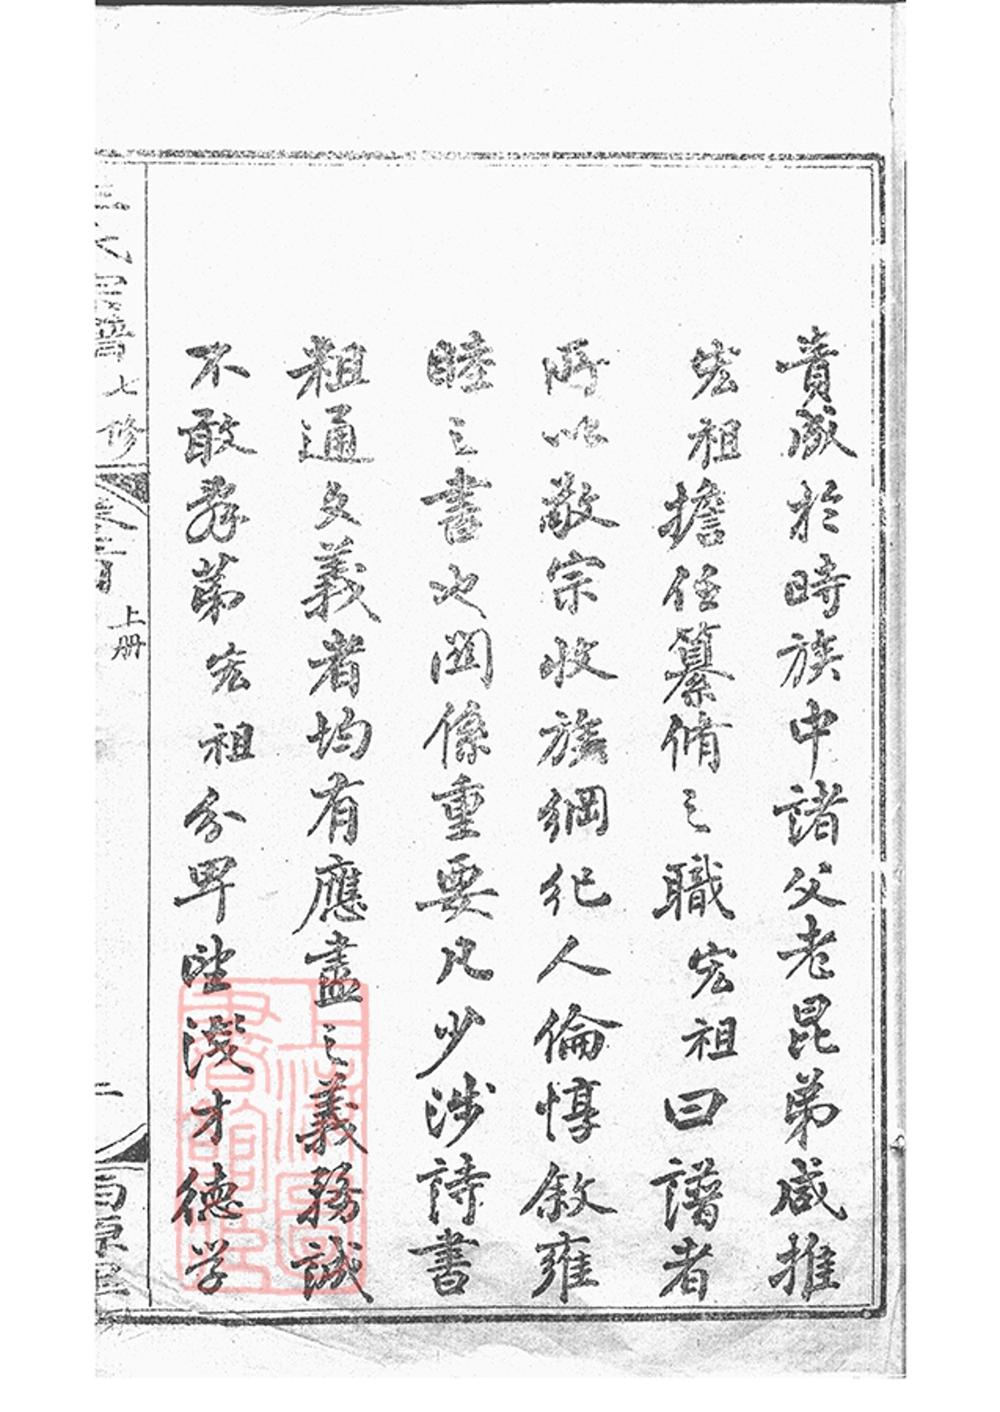 責成於時族中諸父老昆弟咸推
宏祖擔任纂脩之職宏祖曰譜者
所以敬宗收族綱紀人倫惇敘雍
睦之書也関係重要凡少涉詩書
粗通文義者均有應盡之義務誠
不敢辭第宏祖分卑望淺才德学
氏宗譜 七修
卷首 上册